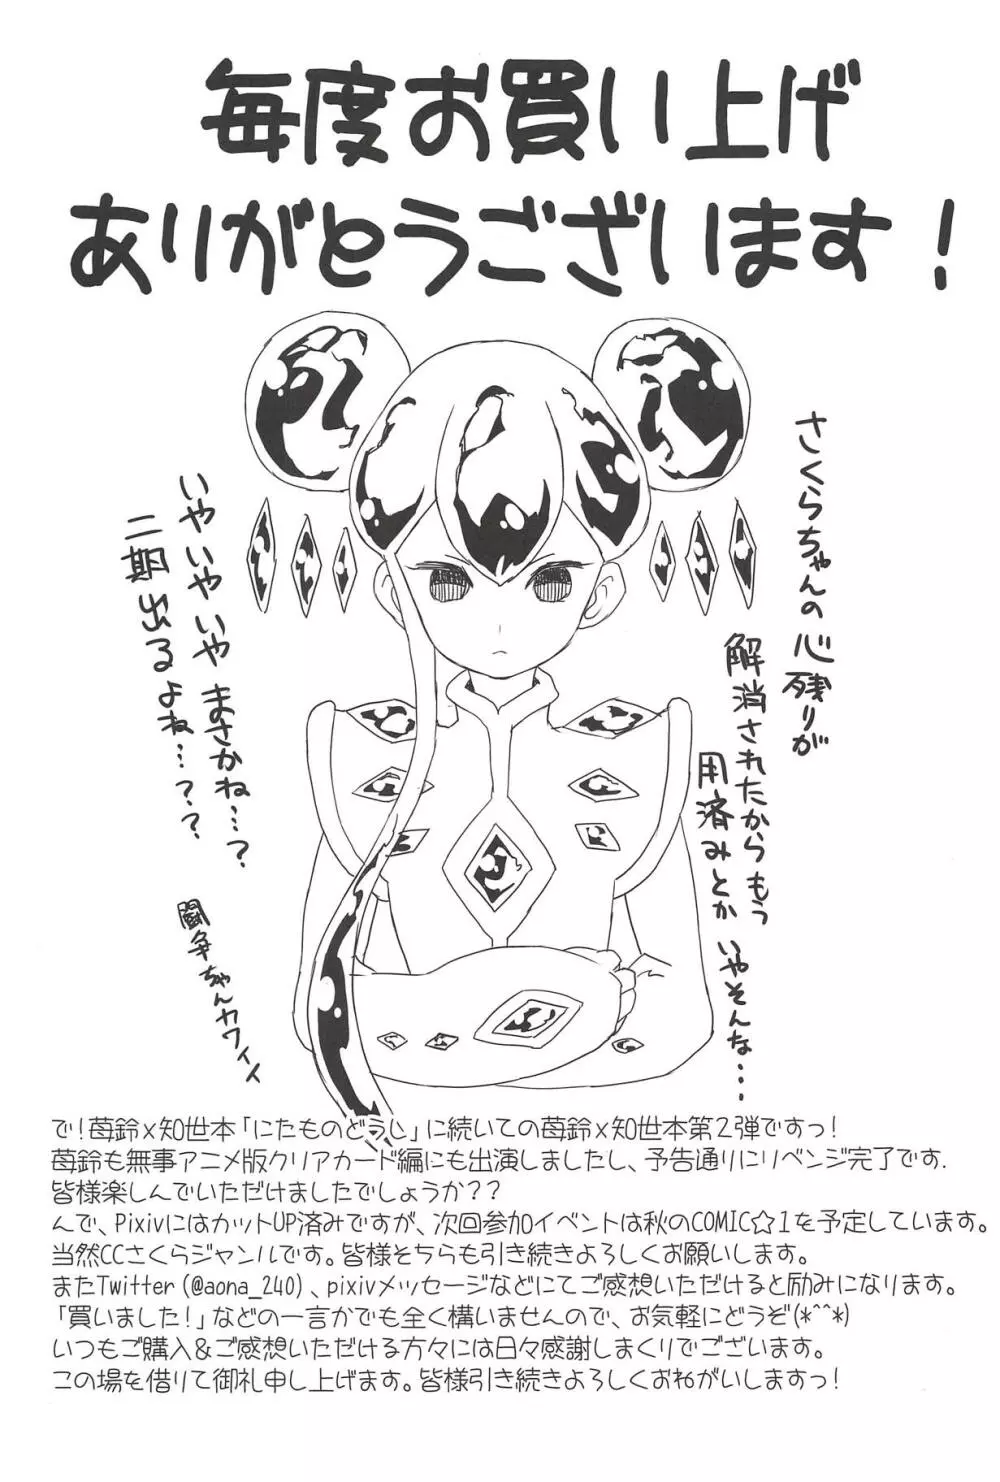 毎度お買い上げ
ありがとうございます!
さくらちゃんの心残りが
解消されたからもう
用済みとか いやそんな…
いやいやいやまさかね…?
二期出るよね…??
闘争ちゃんカワイイ
で!苺鈴×知世本「にたものどうし」に続いての苺鈴×知世本第2弾ですっ!
苺鈴も無事アニメ版クリアカード編にも出演しましたし、予告通りにリベンジ完了です.
皆様楽しんでいただけましたでしょうか??
んで、PixivにはカットUP済みですが、次回参加イベントは秋のCOMIC☆1を予定しています。
当然CCさくらジャンルです。皆様そちらも引き続きよろしくお願いします。
またTwitter(@aona_240)、pixivメッセージなどにてご感想いただけると励みになります。
「買いました!」などの一言かでも全く構いませんので、お気軽にどうぞ(*^^*)
いつもご購入&ご感想いただける方々には日々感謝しまくりでございます。
この場を借りて御礼申し上げます。皆様引き続きよろしくおねがいしますっ!